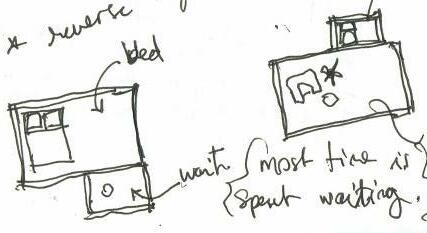 * reverse
bed
wait
most time is
spent waiting.